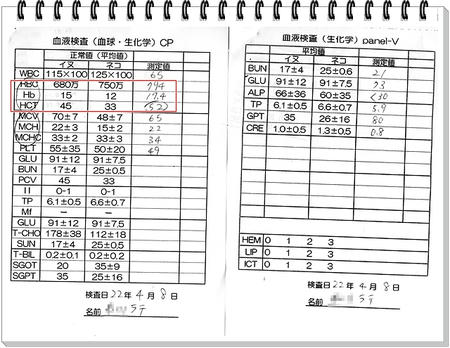 血液検査（血球・生化学）CP
正常値（平均値）
イヌ ネコ 測定値
WBC 115×100 125×100 65
RBC 680万 750万 794
Hb 15 12 17.4
HCT 45 33 52
MCV 70±7 48±7 65
MCH 22±3 15±2 22
MCHC 33±2 33±3 34
PLT 55±35 50±20 49
GLU 91±12 91±7.5
BUN 17±4 25±0.5
PCV 45 33
II 0-1 0-1
TP 6.1±0.5 6.6±0.7
Mf − −
GLU 91±12 91±7.5
T-CHO 178±38 112±18
SUN 17±4 25±0.5
T-BIL 0.2±0.1 0.2±0.2
SGOT 20 35±9
SGPT 35 25±16
検査日 22年 4月 8日
名前
血液検査（生化学）panel-V
（平均値）
イヌ ネコ 測定値
BUN 17±4 25±0.6 21
GLU 91±12 91±7.5 93
ALP 66±36 60±35 <30
TP 6.1±0.6 6.6±0.7 5.9
GPT 35 26±16 80
CRE 1.0±0.5 1.3±0.5 0.8
HEM 0 1 2 3
LIP 0 1 2 3
ICT 0 1 2 3
検査日 22年 4月 8日
名前